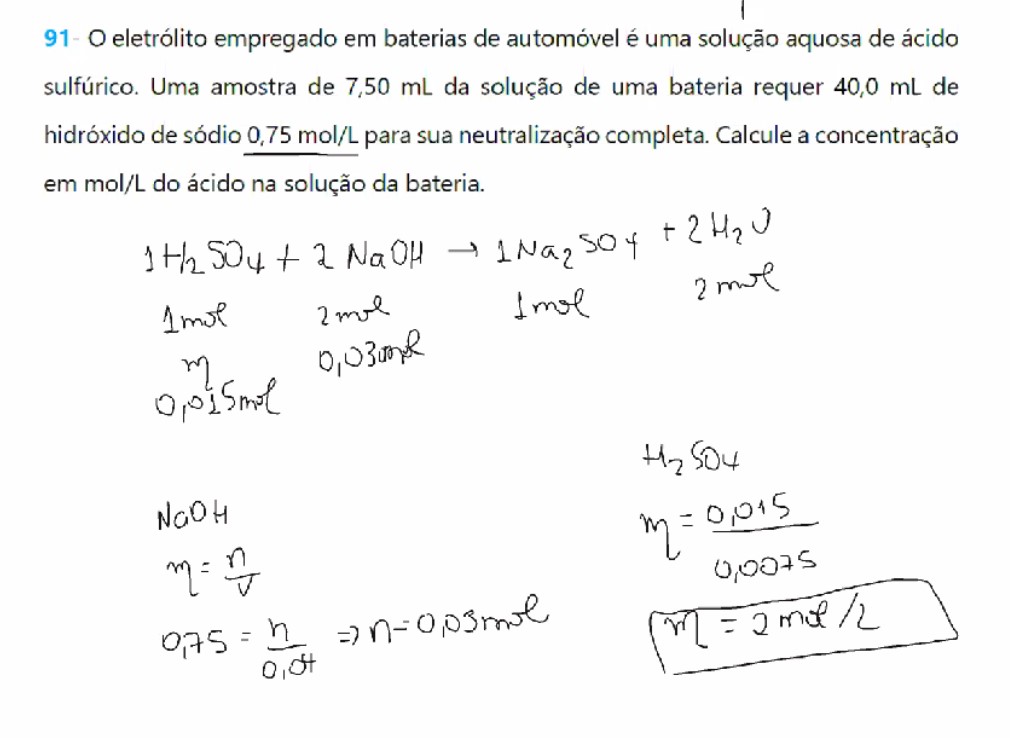 91- O eletrólito empregado em baterias de automóvel é uma solução aquosa de ácido
sulfúrico. Uma amostra de 7,50 mL da solução de uma bateria requer 40,0 mL de
hidróxido de sódio 0,75 mol/L para sua neutralização completa. Calcule a concentração
em mol/L do ácido na solução da bateria.
1H₂SO₄ + 2 NaOH → 1Na₂SO₄ + 2H₂O
1mol 2mol 1mol 2mol
η 0,03mol
0,015mol
H₂SO₄
NaOH
η = 0,015
0,0075
η = n
V
0,75 = n ⇒ n=0,03mol
0,04
η = 2mol/L